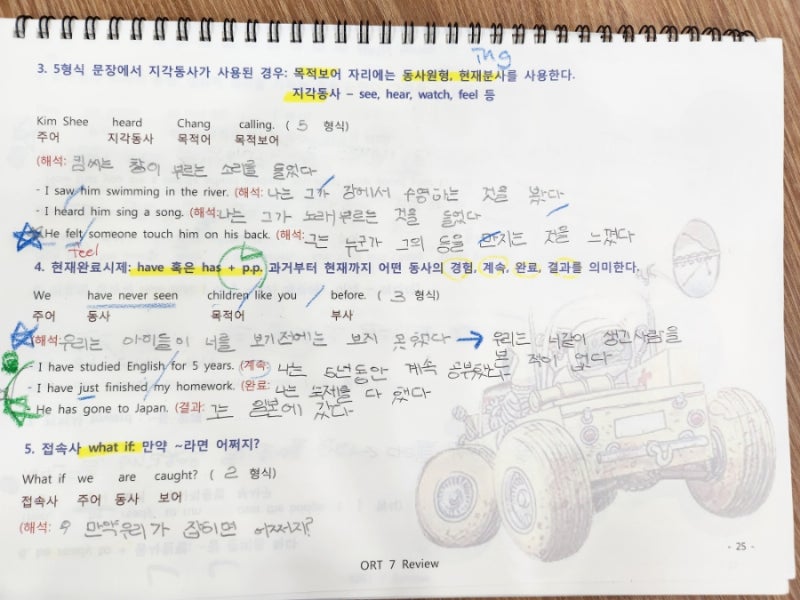 ing
3. 5형식 문장에서 지각동사가 사용된 경우: 목적보어 자리에는 동사원형, 현재분사를 사용한다.
지각동사 – see, hear, watch, feel 등
Kim Shee heard Chang calling. ( 5 형식)
주어 지각동사 목적어 목적보어
(해석: 킴씨는 창이 부르는 소리를 들었다
- I saw him swimming in the river. (해석: 나는 그가 강에서 수영하는 것을 봤다
- I heard him sing a song. (해석: 나는 그가 노래부르는 것을 들었다
- He felt someone touch him on his back. (해석: 그는 누군가 그의 등을 만지는 것을 느꼈다
feel
4. 현재완료시제: have 혹은 has + p.p. 과거부터 현재까지 어떤 동사의 경험, 계속, 완료, 결과를 의미한다.
We have never seen children like you before. ( 3 형식)
주어 동사 목적어 부사
(해석: 우리는 아이들이 너를 보기전에는 보지 못했다 → 우리는 너같이 생긴 사람을
본 적이 없다
- I have studied English for 5 years. (계속: 나는 5년동안 계속 공부했다
- I have just finished my homework. (완료: 나는 숙제를 다 했다
- He has gone to Japan. (결과: 그는 일본에 갔다
5. 접속사 what if: 만약 ~라면 어쩌지?
What if we are caught? ( 2 형식)
접속사 주어 동사 보어
(해석: 만약 우리가 잡히면 어쩌지?
- 25 -
ORT 7 Review